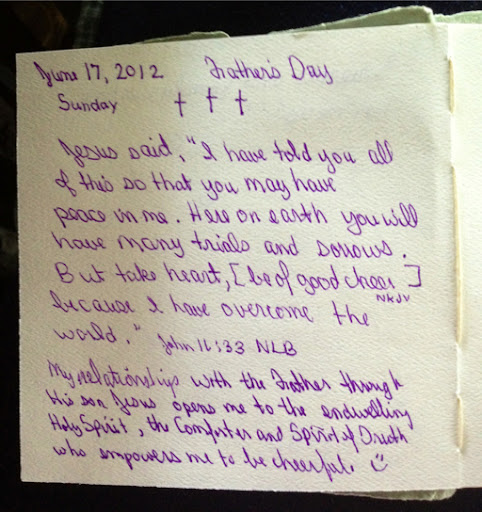 June 17, 2012 Father's Day
Sunday † † †
Jesus said, "I have told you all
of this so that you may have
peace in me. Here on earth you will
have many trials and sorrows.
But take heart, [be of good cheer]
NKJV
because I have overcome the
world." John 16:33 NLB
My relationship with the Father through
His son Jesus opens me to the endwelling
Holy Spirit, the Comforter and Spirit of Truth
who empowers me to be cheerful. ☺